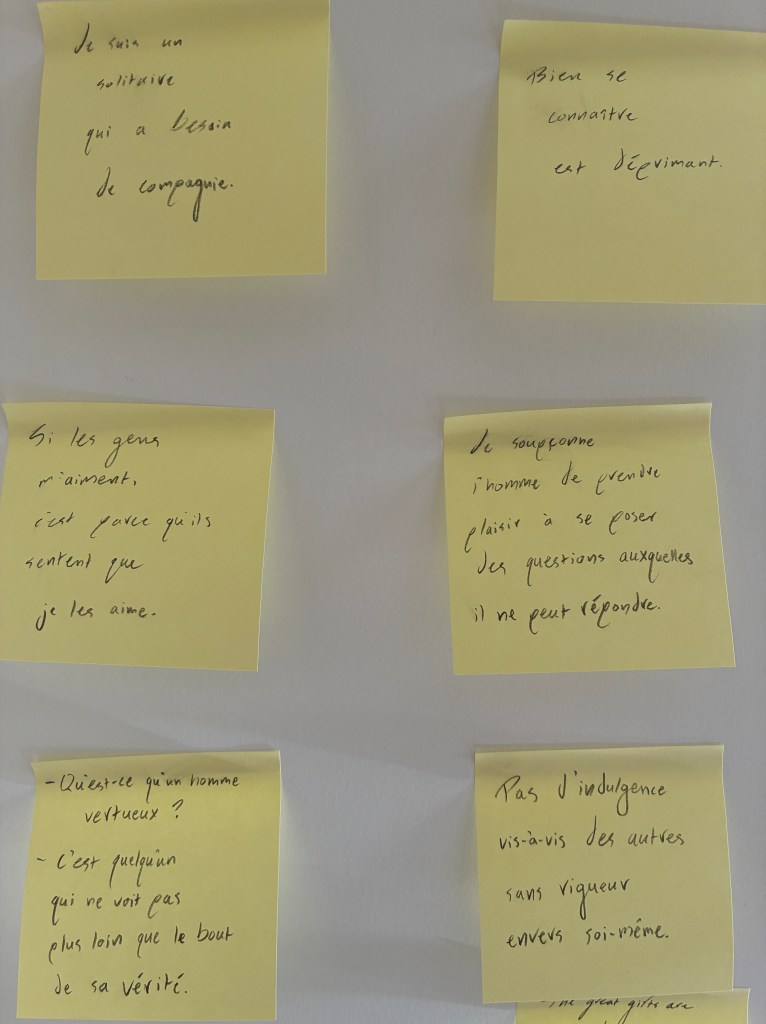 Je suis un
solitaire
qui a besoin
de compagnie.
Bien se
connaître
est déprimant.
Si les gens
m'aiment,
c'est parce qu'ils
sentent que
je les aime.
Je soupçonne
l'homme de prendre
plaisir à se poser
des questions auxquelles
il ne peut répondre.
- Qu'est-ce qu'un homme
vertueux ?
- C'est quelqu'un
qui ne voit pas
plus loin que le bout
de sa vérité.
Pas d'indulgence
vis-à-vis des autres
sans rigueur
envers soi-même.
- The great gifts are